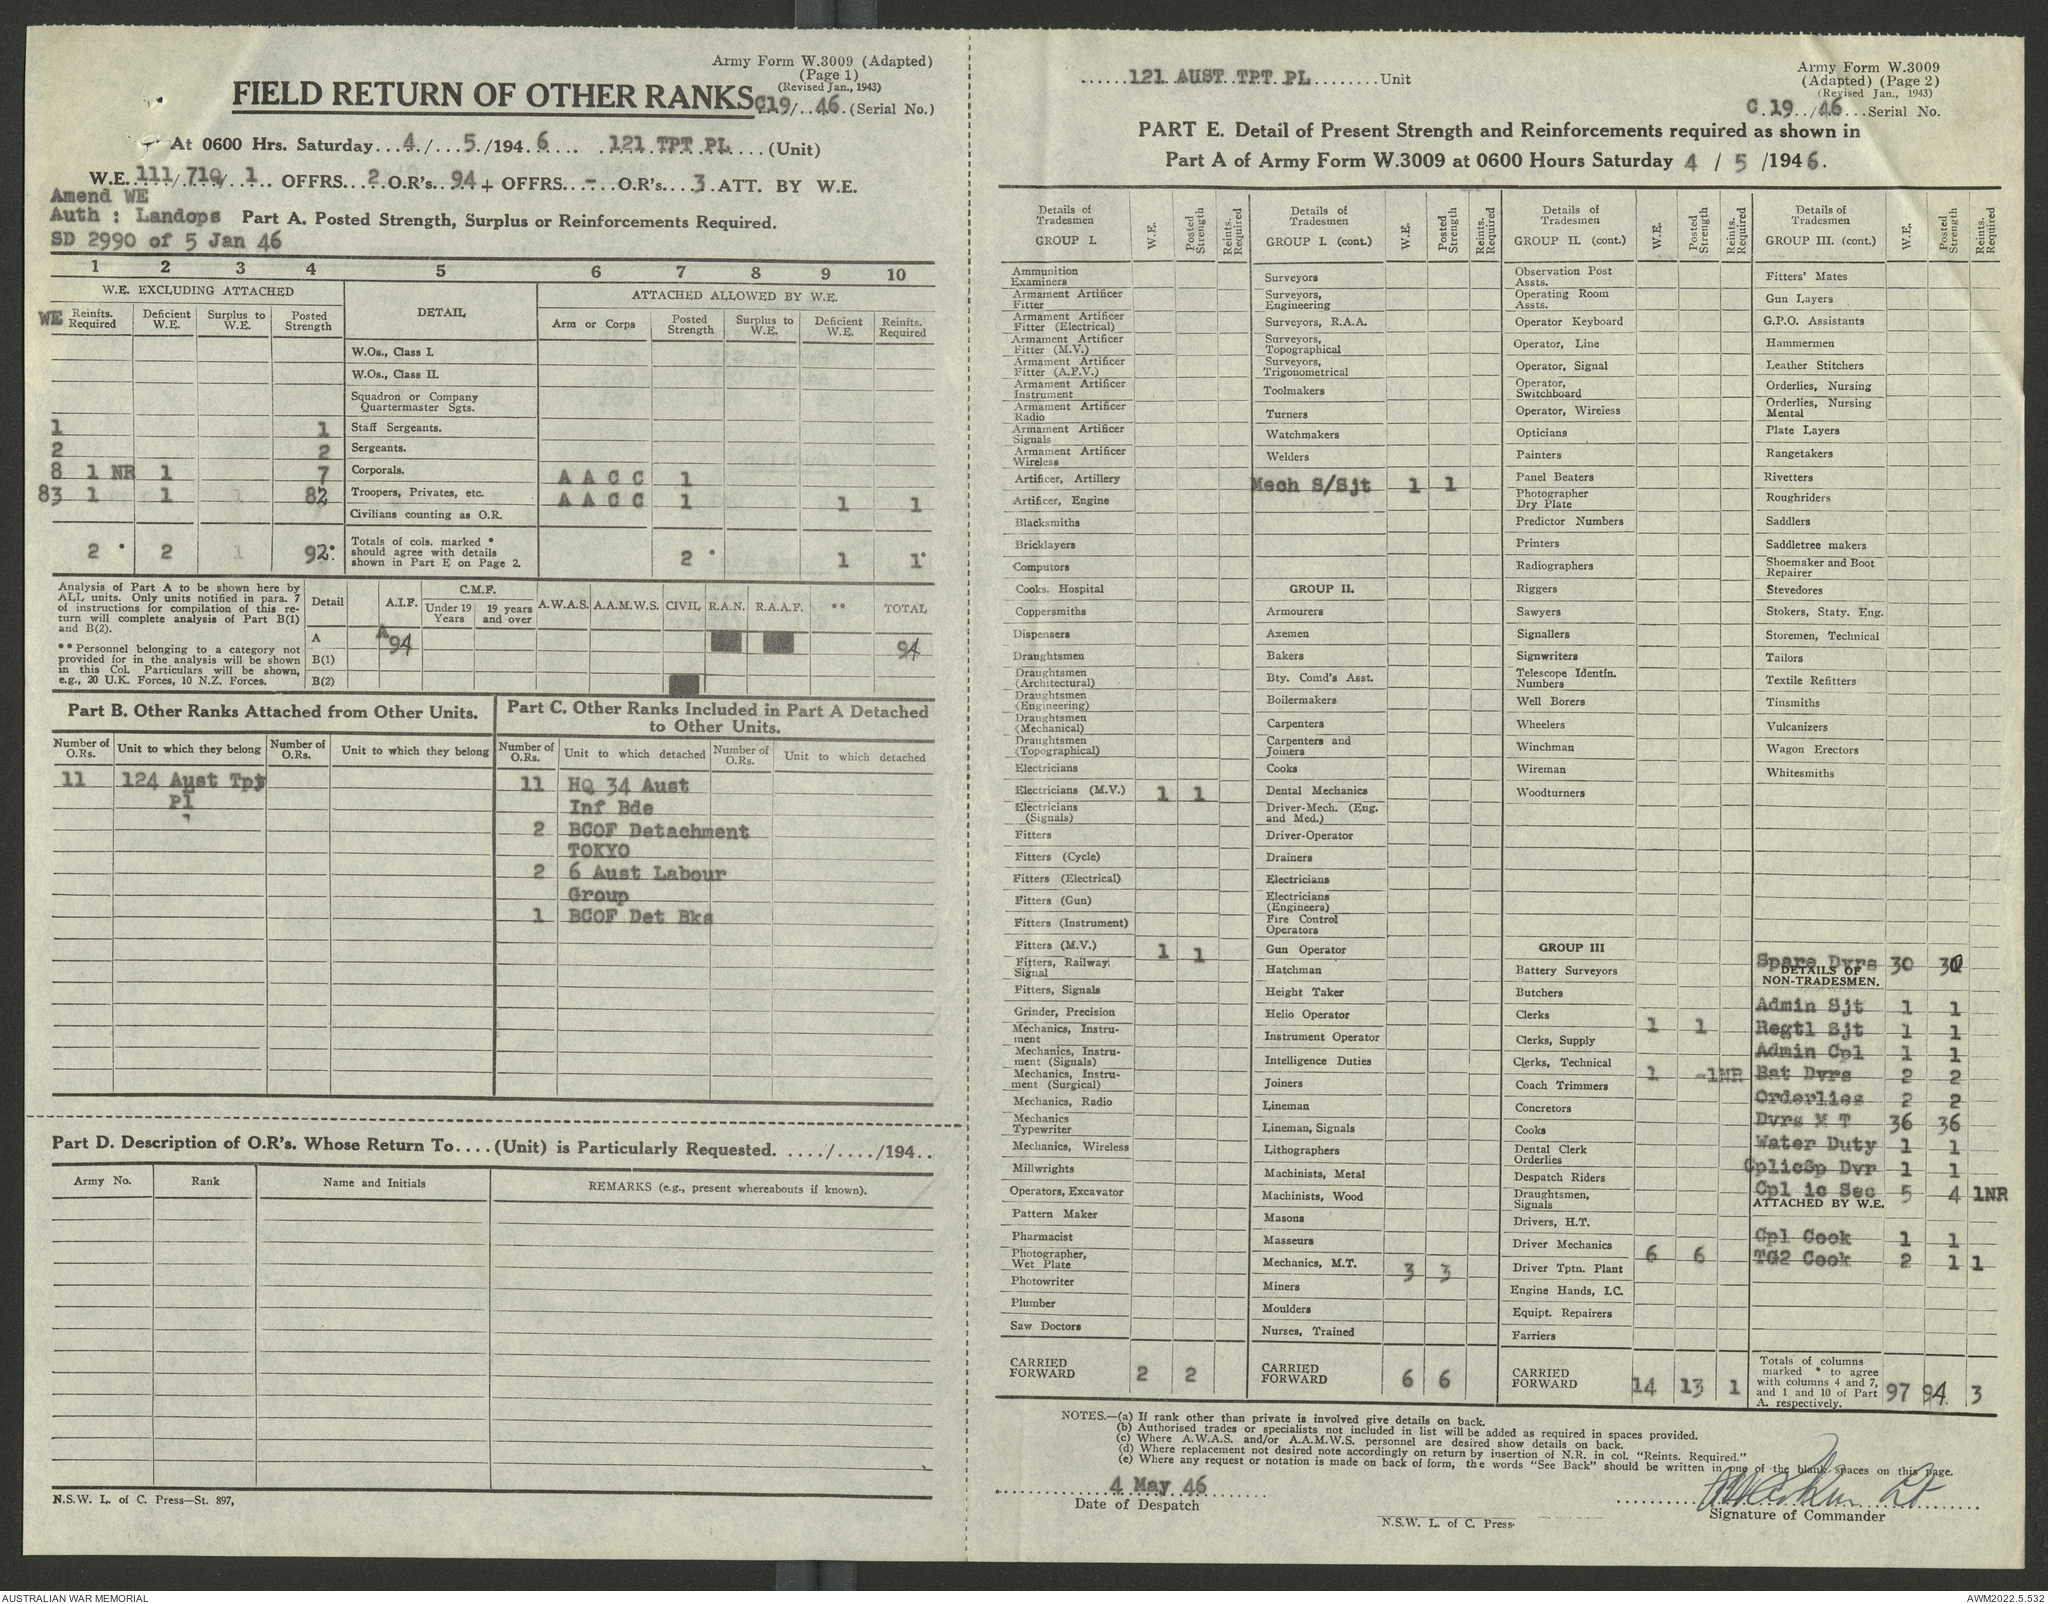 Army Form W.3009 (Adapted)
(Page 1)
(Revised Jan., 1943)
FIELD RETURN OF OTHER RANKS C19/..46.(Serial No.)
At 0600 Hrs. Saturday...4./...5./194.6.... .121 TPT PL....(Unit)
W.E.111/710/.1.. OFFRS...2.O.R's..94+ OFFRS...-..O.R's....3.ATT. BY W.E.
Amend WE
Auth : Landops Part A. Posted Strength, Surplus or Reinforcements Required.
SD 2990 of 5 Jan 46
1 2 3 4 5 6 7 8 9 10
W.E. EXCLUDING ATTACHED DETAIL ATTACHED ALLOWED BY W.E.
WE Reinfts. Required Deficient W.E. Surplus to W.E. Posted Strength Arm or Corps Posted Strength Surplus to W.E. Deficient W.E. Reinfts. Required
W.Os., Class I.
W.Os., Class II.
Squadron or Company Quartermaster Sgts.
1 1 Staff Sergeants.
2 2 Sergeants.
8 1 NR 1 7 Corporals. A A C C 1
83 1 1 82 Troopers, Privates, etc. A A C C 1 1 1
Civilians counting as O.R.
2 * 2 92* Totals of cols. marked * should agree with details shown in Part E on Page 2. 2 * 1 1*
Analysis of Part A to be shown here by
ALL units. Only units notified in para. 7
of instructions for compilation of this re-
turn will complete analysis of Part B(1)
and B(2).
** Personnel belonging to a category not
provided for in the analysis will be shown
in this Col. Particulars will be shown,
e.g., 20 U.K. Forces, 10 N.Z. Forces.
Detail A.I.F. C.M.F. Under 19 Years 19 years and over A.W.A.S. A.A.M.W.S. CIVIL R.A.N. R.A.A.F. ** TOTAL
A 94 94
B(1)
B(2)
Part B. Other Ranks Attached from Other Units.
Number of O.Rs. Unit to which they belong Number of O.Rs. Unit to which they belong
11 124 Aust Tpt
Pl
Part C. Other Ranks Included in Part A Detached
to Other Units.
Number of O.Rs. Unit to which detached Number of O.Rs. Unit to which detached
11 HQ 34 Aust
Inf Bde
2 BCOF Detachment
TOKYO
2 6 Aust Labour
Group
1 BCOF Det Bks
Part D. Description of O.R's. Whose Return To....(Unit) is Particularly Requested. ...../..../194..
Army No. Rank Name and Initials REMARKS (e.g., present whereabouts if known).
N.S.W. L. of C. Press—St. 897,
......121 AUST TPT PL........Unit
Army Form W.3009
(Adapted) (Page 2)
(Revised Jan., 1943)
C.19../46...Serial No.
PART E. Detail of Present Strength and Reinforcements required as shown in
Part A of Army Form W.3009 at 0600 Hours Saturday 4 / 5 /1946.
Details of Tradesmen GROUP I. W.E. Posted Strength Reints. Required
Ammunition Examiners
Armament Artificer Fitter
Armament Artificer Fitter (Electrical)
Armament Artificer Fitter (M.V.)
Armament Artificer Fitter (A.F.V.)
Armament Artificer Instrument
Armament Artificer Radio
Armament Artificer Signals
Armament Artificer Wireless
Artificer, Artillery
Artificer, Engine
Blacksmiths
Bricklayers
Computors
Cooks. Hospital
Coppersmiths
Dispensers
Draughtsmen
Draughtsmen (Architectural)
Draughtsmen (Engineering)
Draughtsmen (Mechanical)
Draughtsmen (Topographical)
Electricians
Electricians (M.V.) 1 1
Electricians (Signals)
Fitters
Fitters (Cycle)
Fitters (Electrical)
Fitters (Gun)
Fitters (Instrument)
Fitters (M.V.) 1 1
Fitters, Railway Signal
Fitters, Signals
Grinder, Precision
Mechanics, Instru-ment
Mechanics, Instru-ment (Signals)
Mechanics, Instru-ment (Surgical)
Mechanics, Radio
Mechanics Typewriter
Mechanics, Wireless
Millwrights
Operators, Excavator
Pattern Maker
Pharmacist
Photographer, Wet Plate
Photowriter
Plumber
Saw Doctors
CARRIED FORWARD 2 2
Details of Tradesmen GROUP I. (cont.) W.E. Posted Strength Reints. Required
Surveyors
Surveyors, Engineering
Surveyors, R.A.A.
Surveyors, Topographical
Surveyors, Trigonometrical
Toolmakers
Turners
Watchmakers
Welders
Mech S/Sjt 1 1
GROUP II.
Armourers
Axemen
Bakers
Bty. Comd's Asst.
Boilermakers
Carpenters
Carpenters and Joiners
Cooks
Dental Mechanics
Driver-Mech. (Eng. and Med.)
Driver-Operator
Drainers
Electricians
Electricians (Engineers)
Fire Control Operators
Gun Operator
Hatchman
Height Taker
Helio Operator
Instrument Operator
Intelligence Duties
Joiners
Lineman
Lineman, Signals
Lithographers
Machinists, Metal
Machinists, Wood
Masons
Masseurs
Mechanics, M.T. 3 3
Miners
Moulders
Nurses, Trained
CARRIED FORWARD 6 6
Details of Tradesmen GROUP II. (cont.) W.E. Posted Strength Reints. Required
Observation Post Assts.
Operating Room Assts.
Operator Keyboard
Operator, Line
Operator, Signal
Operator, Switchboard
Operator, Wireless
Opticians
Painters
Panel Beaters
Photographer Dry Plate
Predictor Numbers
Printers
Radiographers
Riggers
Sawyers
Signallers
Signwriters
Telescope Identfn. Numbers
Well Borers
Wheelers
Winchman
Wireman
Woodturners
GROUP III
Battery Surveyors
Butchers
Clerks 1 1
Clerks, Supply
Clerks, Technical
Coach Trimmers 1 -1NR
Concretors
Cooks
Dental Clerk Orderlies
Despatch Riders
Draughtsmen, Signals
Drivers, H.T.
Driver Mechanics 6 6
Driver Tptn. Plant
Engine Hands, I.C.
Equipt. Repairers
Farriers
CARRIED FORWARD 14 13 1
Details of Tradesmen GROUP III. (cont.) W.E. Posted Strength Reints. Required
Fitters' Mates
Gun Layers
G.P.O. Assistants
Hammermen
Leather Stitchers
Orderlies, Nursing
Orderlies, Nursing Mental
Plate Layers
Rangetakers
Rivetters
Roughriders
Saddlers
Saddletree makers
Shoemaker and Boot Repairer
Stevedores
Stokers, Staty. Eng.
Storemen, Technical
Tailors
Textile Refitters
Tinsmiths
Vulcanizers
Wagon Erectors
Whitesmiths
Spare Dvrs 30 30
DETAILS OF NON-TRADESMEN.
Admin Sjt 1 1
Regtl Sjt 1 1
Admin Cpl 1 1
Bat Dvrs 2 2
Orderlies 2 2
Dvrs M T 36 36
Water Duty 1 1
CplicSp Dvr 1 1
Cpl ic Sec 5 4 1NR
ATTACHED BY W.E.
Cpl Cook 1 1
TG2 Cook 2 1 1
Totals of columns marked * to agree with columns 4 and 7, and 1 and 10 of Part A. respectively. 97 94. 3
NOTES.—(a) If rank other than private is involved give details on back.
(b) Authorised trades or specialists not included in list will be added as required in spaces provided.
(c) Where A.W.A.S. and/or A.A.M.W.S. personnel are desired show details on back.
(d) Where replacement not desired note accordingly on return by insertion of N.R. in col. "Reints. Required."
(e) Where any request or notation is made on back of form, the words "See Back" should be written in one of the blank spaces on this page.
4 May 46
Date of Despatch
Lt
Signature of Commander
N.S.W. L. of C. Press.
AUSTRALIAN WAR MEMORIAL
AWM2022.5.532